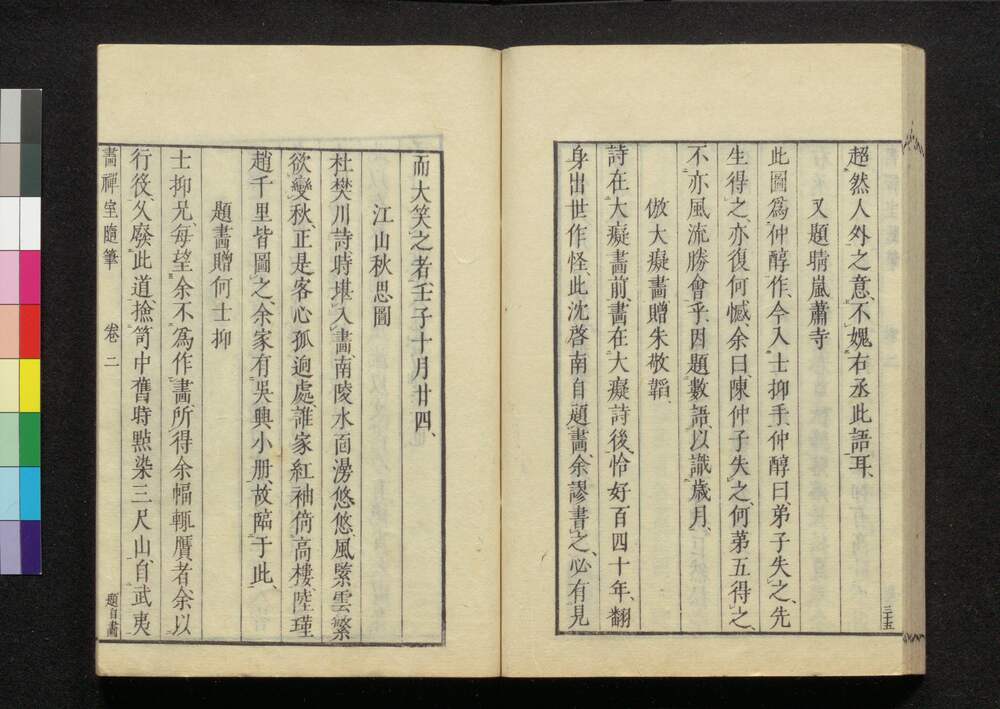 超然人外之意、不媿右丞此語耳、
又題晴嵐蕭寺
此圖爲仲醇作、今入士抑手、仲醇曰、弟子失之、先
生得之、亦復何憾、余曰、陳仲子失之、何第五得之、
不亦風流勝會乎、因題數語、以識歲月、
倣大癡畵贈朱敬韜、
詩在大癡畵前、畵在大癡詩後、恰好百四十年、翻
身出世作怪、此沈啓南自題畵、余謬書之、必有見
三十五
而大笑之者壬子十月廿四、
江山秋思圖
杜樊川詩、時堪入畵、南陵水面漫悠悠、風緊雲繁
欲變秋、正是客心孤迥處、誰家紅袖倚高樓、陸瑾
趙千里皆圖之、余家有吳興小册、故臨于此、
題畵贈何士抑
士抑兄、每望余不爲作畵、所得余幅輒贋者、余以
行後、久廢此道、撿笥中舊時㸃染三尺山、自武夷
畵禪室隨筆 卷二 題自畵